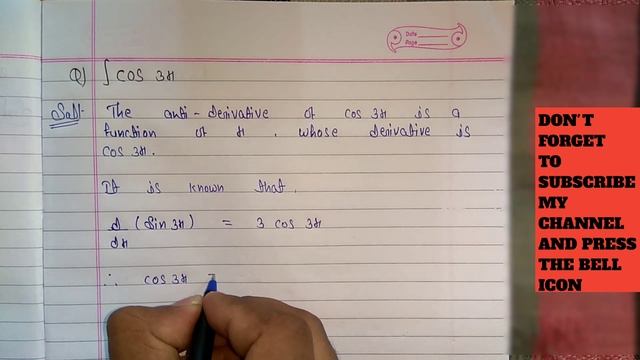 Date
Page
Q) ∫ cos 3x
Sol:- The anti-derivative of cos 3x is a
function of x. whose derivative is
cos 3x.
It is known that,
d (sin 3x) = 3 cos 3x
dx
∴ cos 3x =
DON'T
FORGET
TO
SUBSCRIBE
MY
CHANNEL
AND PRESS
THE BELL
ICON